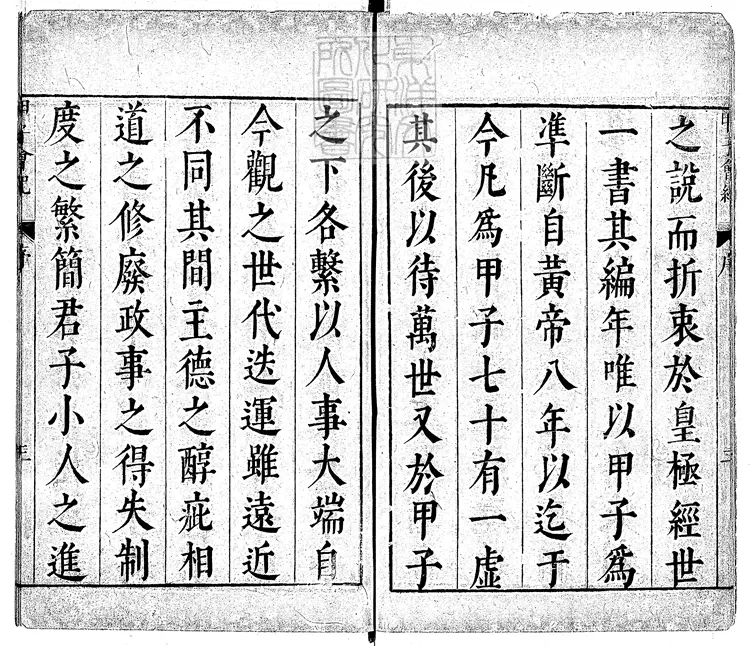 之說而折衷於皇極經世
一書其編年唯以甲子爲
準斷自黃帝八年以迄于
今凡爲甲子七十有一虛
其後以待萬世又於甲子
之下各繫以人事大端自
今觀之世代迭運雖遠近
不同其間主德之醇疵相
道之修廢政事之得失制
度之繁簡君子小人之進
序
三